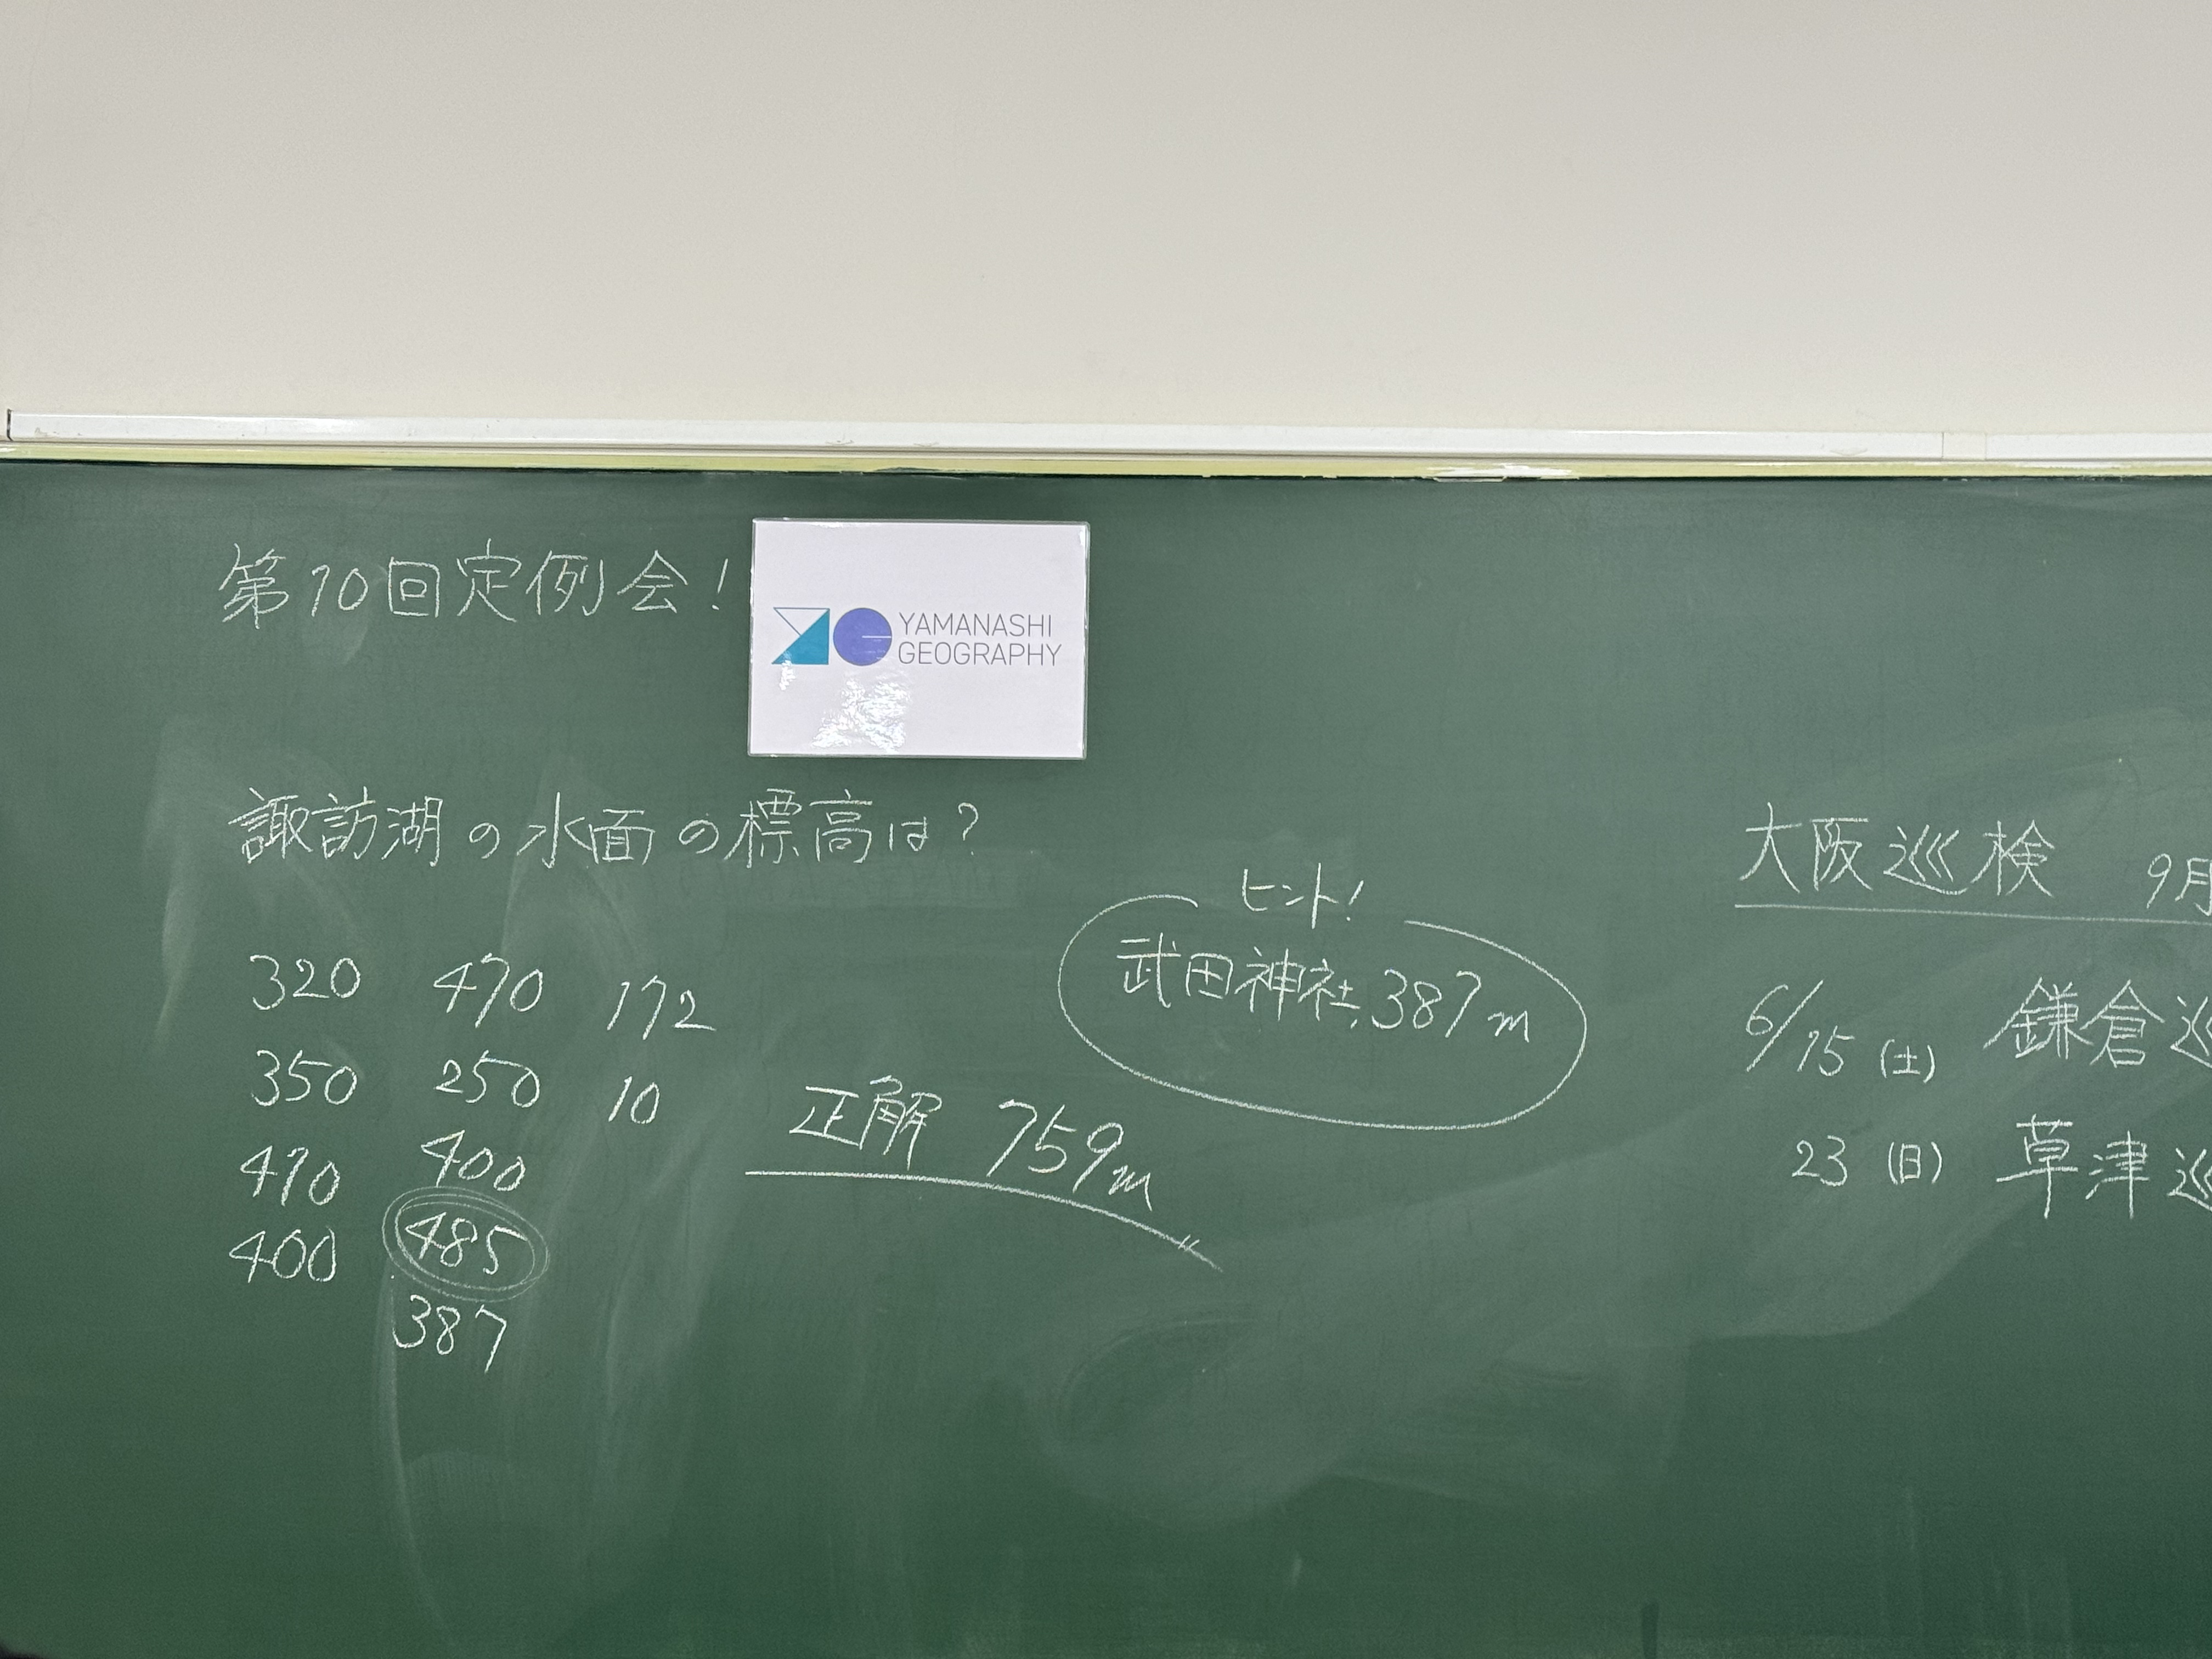 第10回定例会!
YAMANASHI
GEOGRAPHY
諏訪湖の水面の標高は?
320 470 172
350 250 10
470 400
400 485
387
ヒント!
武田神社 387m
正解 759m
大阪巡検 9月
6/15 (土) 鎌倉巡
23 (日) 草津巡